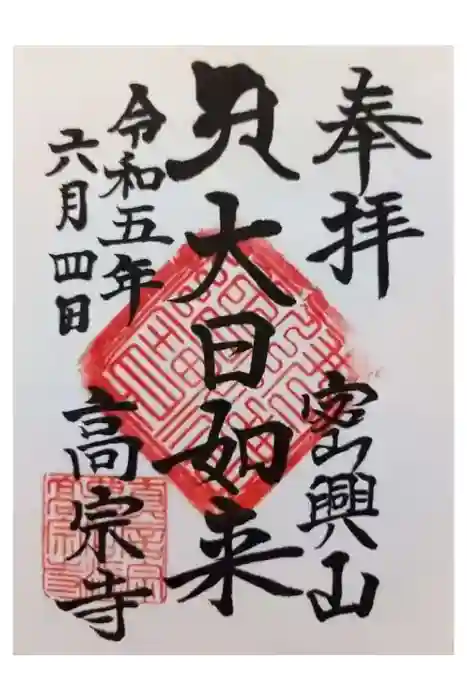 奉拝
密興山
大日如来
令和五年
六月四日
高宗寺